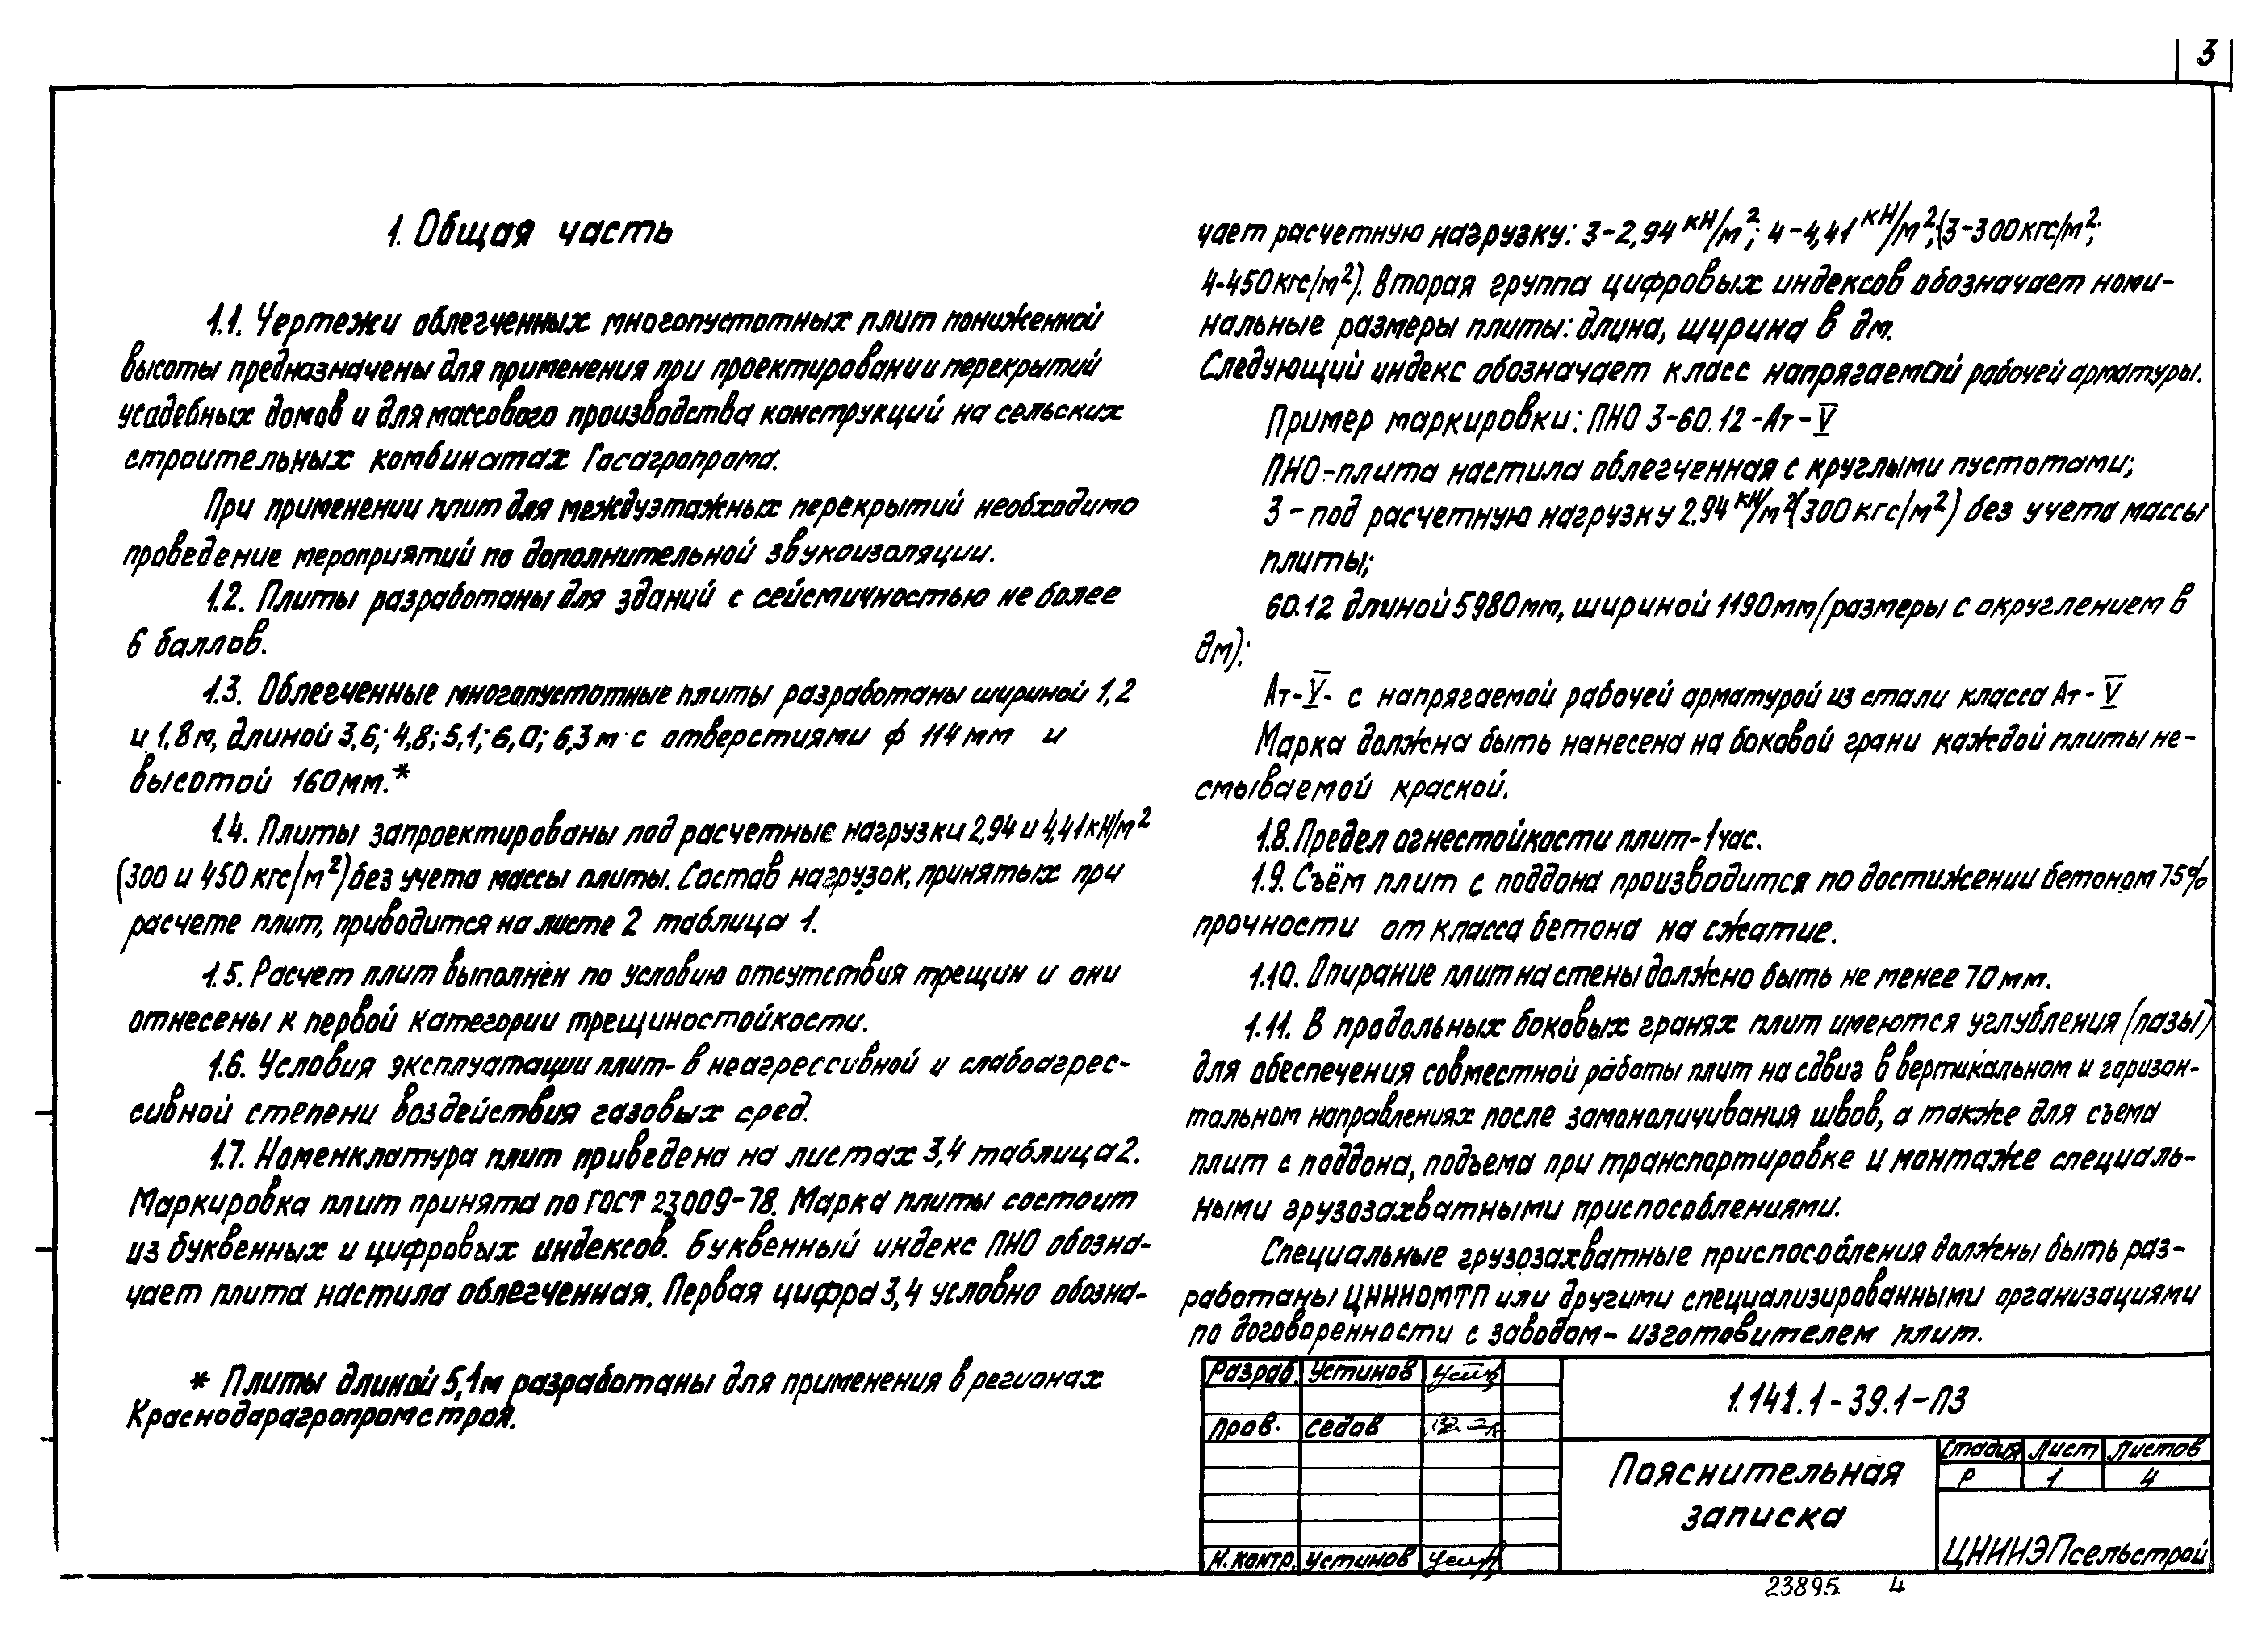 3
1. Общая часть
1.1. Чертежи облегченных многопустотных плит пониженной
высоты предназначены для применения при проектировании перекрытий
усадебных домов и для массового производства конструкций на сельских
строительных комбинатах Госагропрома.
При применении плит для междуэтажных перекрытий необходимо
проведение мероприятий по дополнительной звукоизоляции.
1.2. Плиты разработаны для зданий с сейсмичностью не более
6 баллов.
1.3. Облегченные многопустотные плиты разработаны шириной 1,2
и 1,8м, длиной 3,6; 4,8; 5,1; 6,0; 6,3м с отверстиями ϕ 114мм и
высотой 160мм.*
1.4. Плиты запроектированы под расчетные нагрузки 2,94 и 4,41кН/м²
(300 и 450 кгс/м²) без учета массы плиты. Состав нагрузок, принятых при
расчете плит, приводится на листе 2 таблица 1.
1.5. Расчет плит выполнен по условию отсутствия трещин и они
отнесены к первой категории трещиностойкости.
1.6. Условия эксплуатации плит- в неагрессивной и слабоагрес-
сивной степени воздействия газовых сред.
1.7. Номенклатура плит приведена на листах 3,4 таблица 2.
Маркировка плит принята по ГОСТ 23009-78. Марка плиты состоит
из буквенных и цифровых индексов. Буквенный индекс ПНО обозна-
чает плита настила облегченная. Первая цифра 3,4 условно обозна-
* Плиты длиной 5,1м разработаны для применения в регионах
Краснодарагропромстроя.
чает расчетную нагрузку: 3-2,94 кН/м²; 4-4,41 кН/м²; (3-300кгс/м²;
4-450кгс/м²). Вторая группа цифровых индексов обозначает номи-
нальные размеры плиты: длина, ширина в дм.
Следующий индекс обозначает класс напрягаемой рабочей арматуры.
Пример маркировки: ПНО 3-60.12-Ат-V
ПНО-плита настила облегченная с круглыми пустотами;
3 - под расчетную нагрузку 2,94 кН/м² (300 кгс/м²) без учета массы
плиты;
60.12 длиной 5980мм, шириной 1190мм (размеры с округлением в
дм);
Ат-V- с напрягаемой рабочей арматурой из стали класса Ат-V
Марка должна быть нанесена на боковой грани каждой плиты не-
смываемой краской.
1.8. Предел огнестойкости плит-1час.
1.9. Съём плит с поддона производится по достижении бетоном 75%
прочности от класса бетона на сжатие.
1.10. Опирание плит на стены должно быть не менее 70мм.
1.11. В продольных боковых гранях плит имеются углубления (пазы)
для обеспечения совместной работы плит на сдвиг в вертикальном и горизон-
тальном направлениях после замоноличивания швов, а также для съема
плит с поддона, подъема при транспортировке и монтаже специаль-
ными грузозахватными приспособлениями.
Специальные грузозахватные приспособления должны быть раз-
работаны ЦНИИОМТП или другими специализированными организациями
по договоренности с заводом-изготовителем плит.
Разраб. Устинов
Пров. Седов
Н.контр. Устинов
1.141.1-39.1-ПЗ
Пояснительная
записка
Стадия Лист Листов
Р 1 4
ЦНИИЭПсельстрой
23895 4